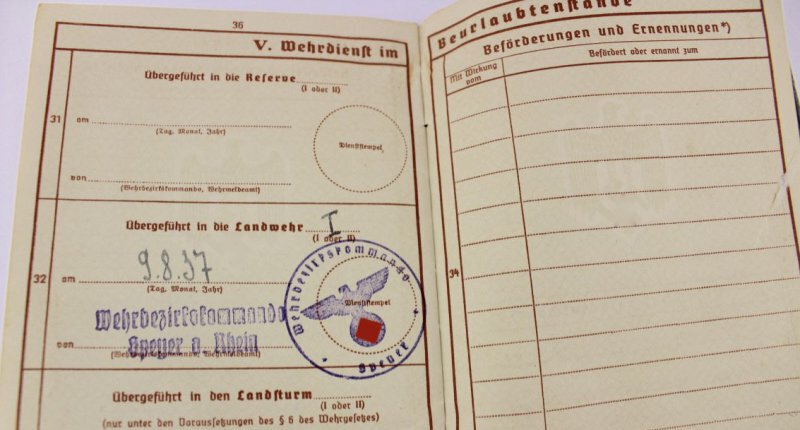 36
V. Wehrdienst im
Übergeführt in die Reserve
(I oder II)
31
am
(Tag, Monat, Jahr)
Dienststempel
von
(Wehrbezirkskommando, Wehrmeldeamt)
Übergeführt in die Landwehr I
(I oder II)
32
am 9.8.37
(Tag, Monat, Jahr)
Wehrbezirkskommando
Speyer a. Rhein
von
(Wehrbezirkskommando, Wehrmeldeamt)
Wehrbezirkskommando
Dienststempel
Speyer
Übergeführt in den Landsturm
(I oder II)
(nur unter den Voraussetzungen des § 6 des Wehrgesetzes)
Beurlaubtenstande
Beförderungen und Ernennungen*)
Mit Wirkung
vom
Befördert oder ernannt zum
34